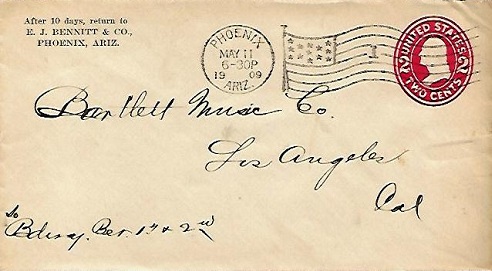 After 10 days, return to
E. J. BENNITT & CO.,
PHOENIX, ARIZ.
PHOENIX
MAY 11
6-30P
1909
ARIZ.
1
UNITED STATES
2 2
TWO CENTS
Bartlett Music Co.
Los Angeles
Cal
So
Bdway. Bet. 1st & 2nd